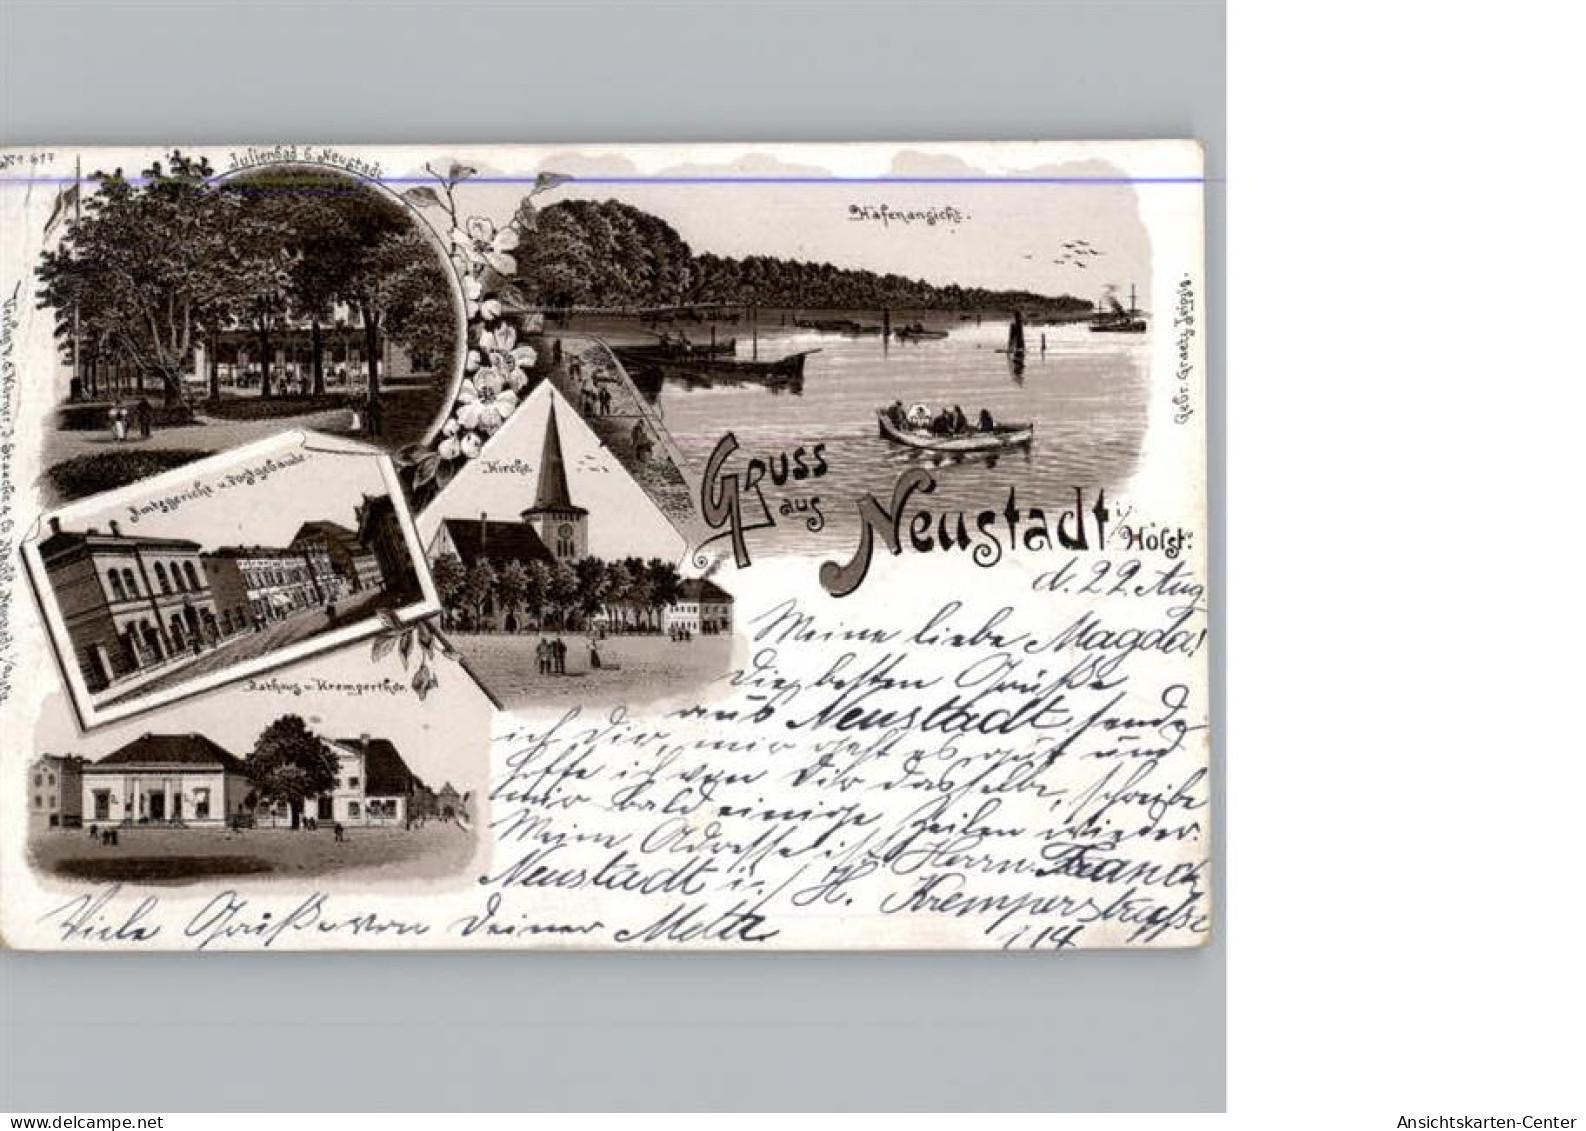 No 617
Julienbad b. Neustadt
Hafenansicht.
Gebr. Graetz, Leipzig.
Kirche.
Amtsgericht u. Postgebäude.
Rathaus u. Kremperthor.
Gruss
aus
Neustadt i/Holst.
d. 22 Aug
Meine liebe Magda!
Die besten Grüße
aus Neustadt sende
ich Dir, mir geht es gut und
hoffe ich von Dir dasselbe, schreibe
mir bald einige Zeilen wieder.
Meine Adresse ist Herrn Franck
Neustadt i./H. Kremperstrasse
14
Viele Grüße von Deiner Meta.
Ansichtskarten-Center